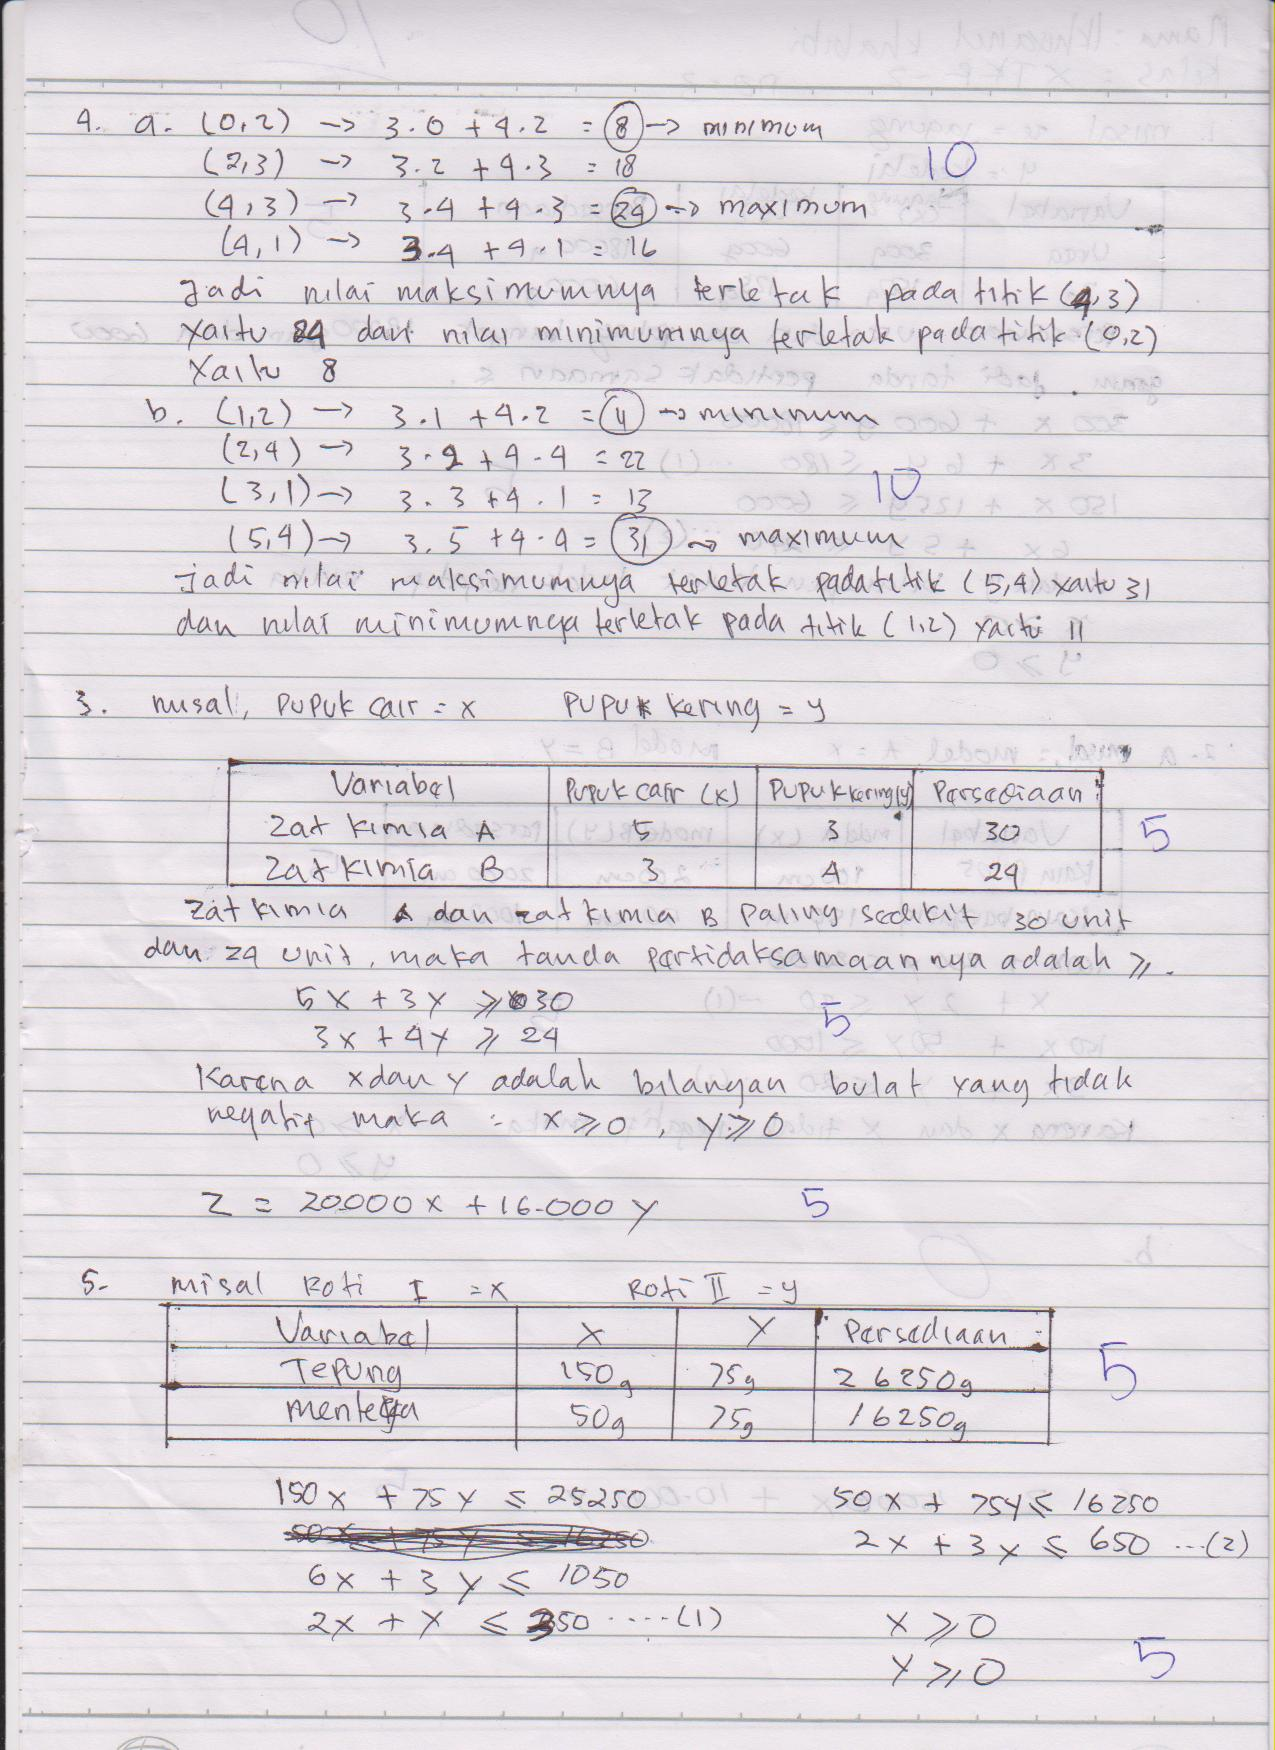 4. a. (0,2) → 3.0 + 4.2 = 8 → minimum
(2,3) → 3.2 + 4.3 = 18
10
(4,3) → 3.4 + 4.3 = 24 → maximum
(4,1) → 3.4 + 4.1 = 16
Jadi nilai maksimumnya terletak pada titik (4,3)
yaitu 24 dan nilai minimumnya terletak pada titik (0,2)
yaitu 8
b. (1,2) → 3.1 + 4.2 = 4 → minimum
(2,4) → 3.2 + 4.4 = 22
(3,1) → 3.3 + 4.1 = 13
10
(5,4) → 3.5 + 4.4 = 31 → maximum
jadi nilai maksimumnya terletak pada titik (5,4) yaitu 31
dan nilai minimumnya terletak pada titik (1,2) yaitu 11
3. misal, pupuk cair = x pupuk kering = y
Variabel pupuk cair (x) pupuk kering (y) Persediaan
Zat kimia A 5 3 30
5
Zat kimia B 3 4 24
Zat kimia A dan zat kimia B paling sedikit 30 unit
dan 24 unit, maka tanda pertidaksamaannya adalah ≥.
5x + 3y ≥ 30
5
3x + 4y ≥ 24
Karena x dan y adalah bilangan bulat yang tidak
negatif maka : x ≥ 0, y ≥ 0
Z = 20.000 x + 16.000 y 5
5. Misal Roti I = x Roti II = y
Variabel x y Persediaan
Tepung 150g 75g 26250g
5
mentega 50g 75g 16250g
150x + 75y ≤ 25250 50x + 75y ≤ 16250
50x + 75y ≤ 16250 2x + 3y ≤ 650 ...(2)
6x + 3y ≤ 1050
2x + y ≤ 350 .....(1) x ≥ 0
y ≥ 0 5